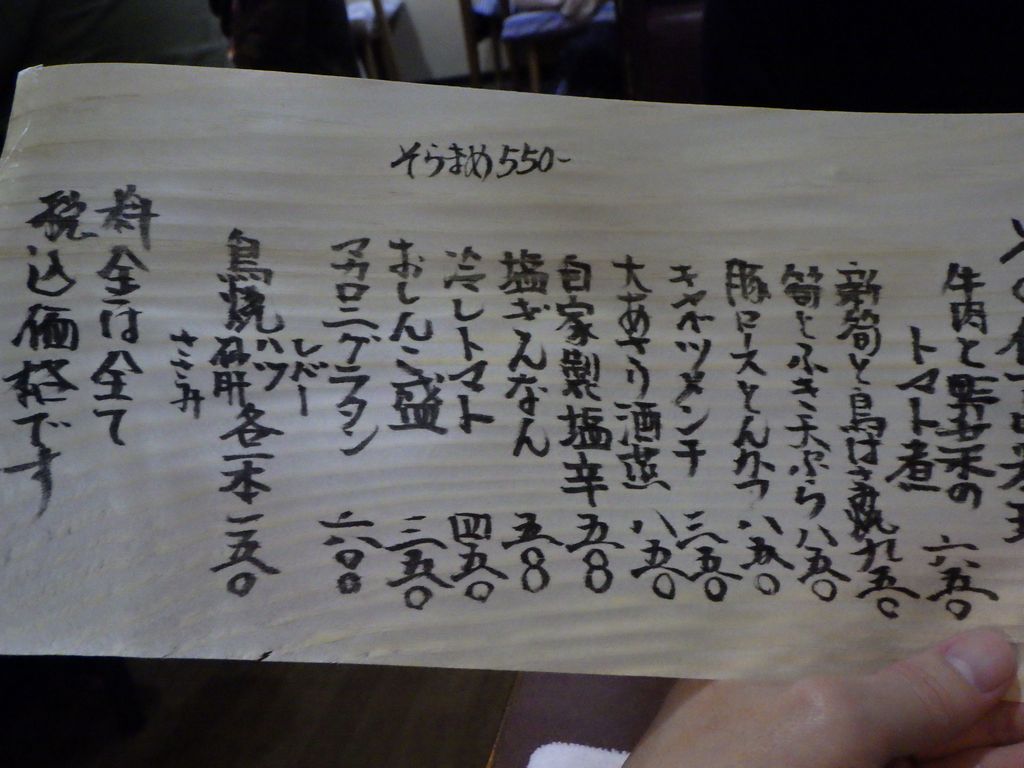 そらまめ550-
牛肉と野菜の
トマト煮 六五〇
新筍と鳥はさみ焼 九五〇
筍とふき天ぷら 八五〇
豚ロースとんかつ 八五〇
キャベツメンチ 三五〇
大あさり酒蒸 八五〇
自家製塩辛 五〇〇
塩ぎんなん 五〇〇
冷しトマト 四五〇
おしんこ盛 三五〇
マカロニグラタン 六〇〇
鳥焼
レバー
ハツ
砂肝
ささみ
各一本 一五〇
料金は全て
税込価格です